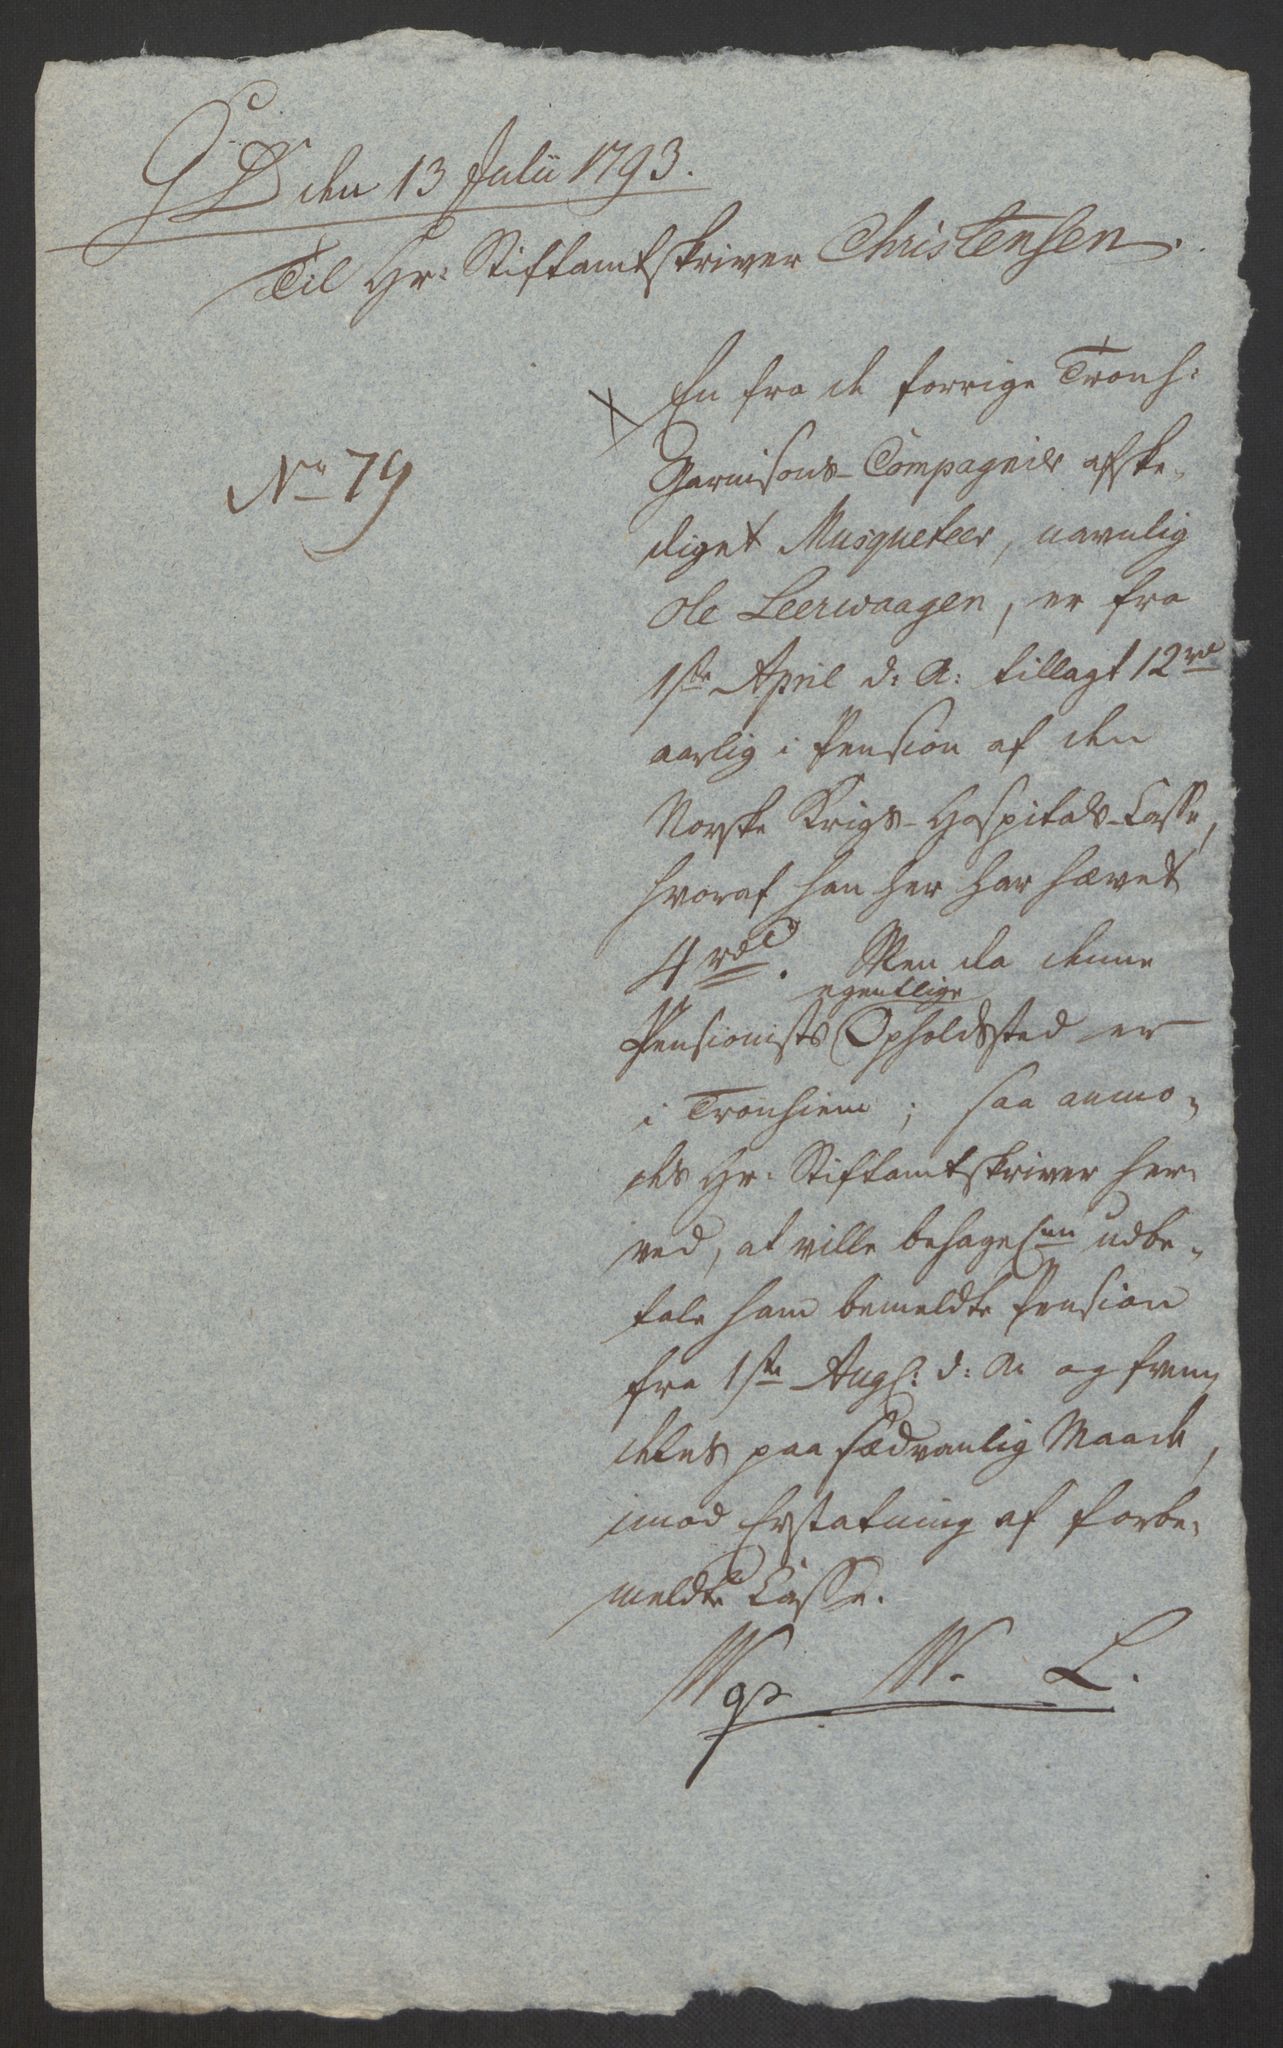 GD den 13 Julii 1793.
Til Hr: Stiftamtskriver Christensen.
En fra de forrige Tronh:
No 79
Garnisons-Compagnier afske-
diget Musqueteer, navnlig
Ole Leerwaagen, er fra
1ste April d: A: tillagt 12 rd
aarlig i Pension af den
Norske Krigs-Hospitals-Casse,
hvoraf han her har hævet
4 rd. Men da denne
egentlige
Pensionists Opholdsted er
i Tronhiem; saa anmo-
des Hr: Stiftamtskriver her-
ved, at ville behageligen udbe-
tale ham bemeldte Pension
fra 1ste Aug: d: A: og frem-
deles paa sædvanlig Maade,
imod Erstatning af forbe-
meldte Casse.
W. L.